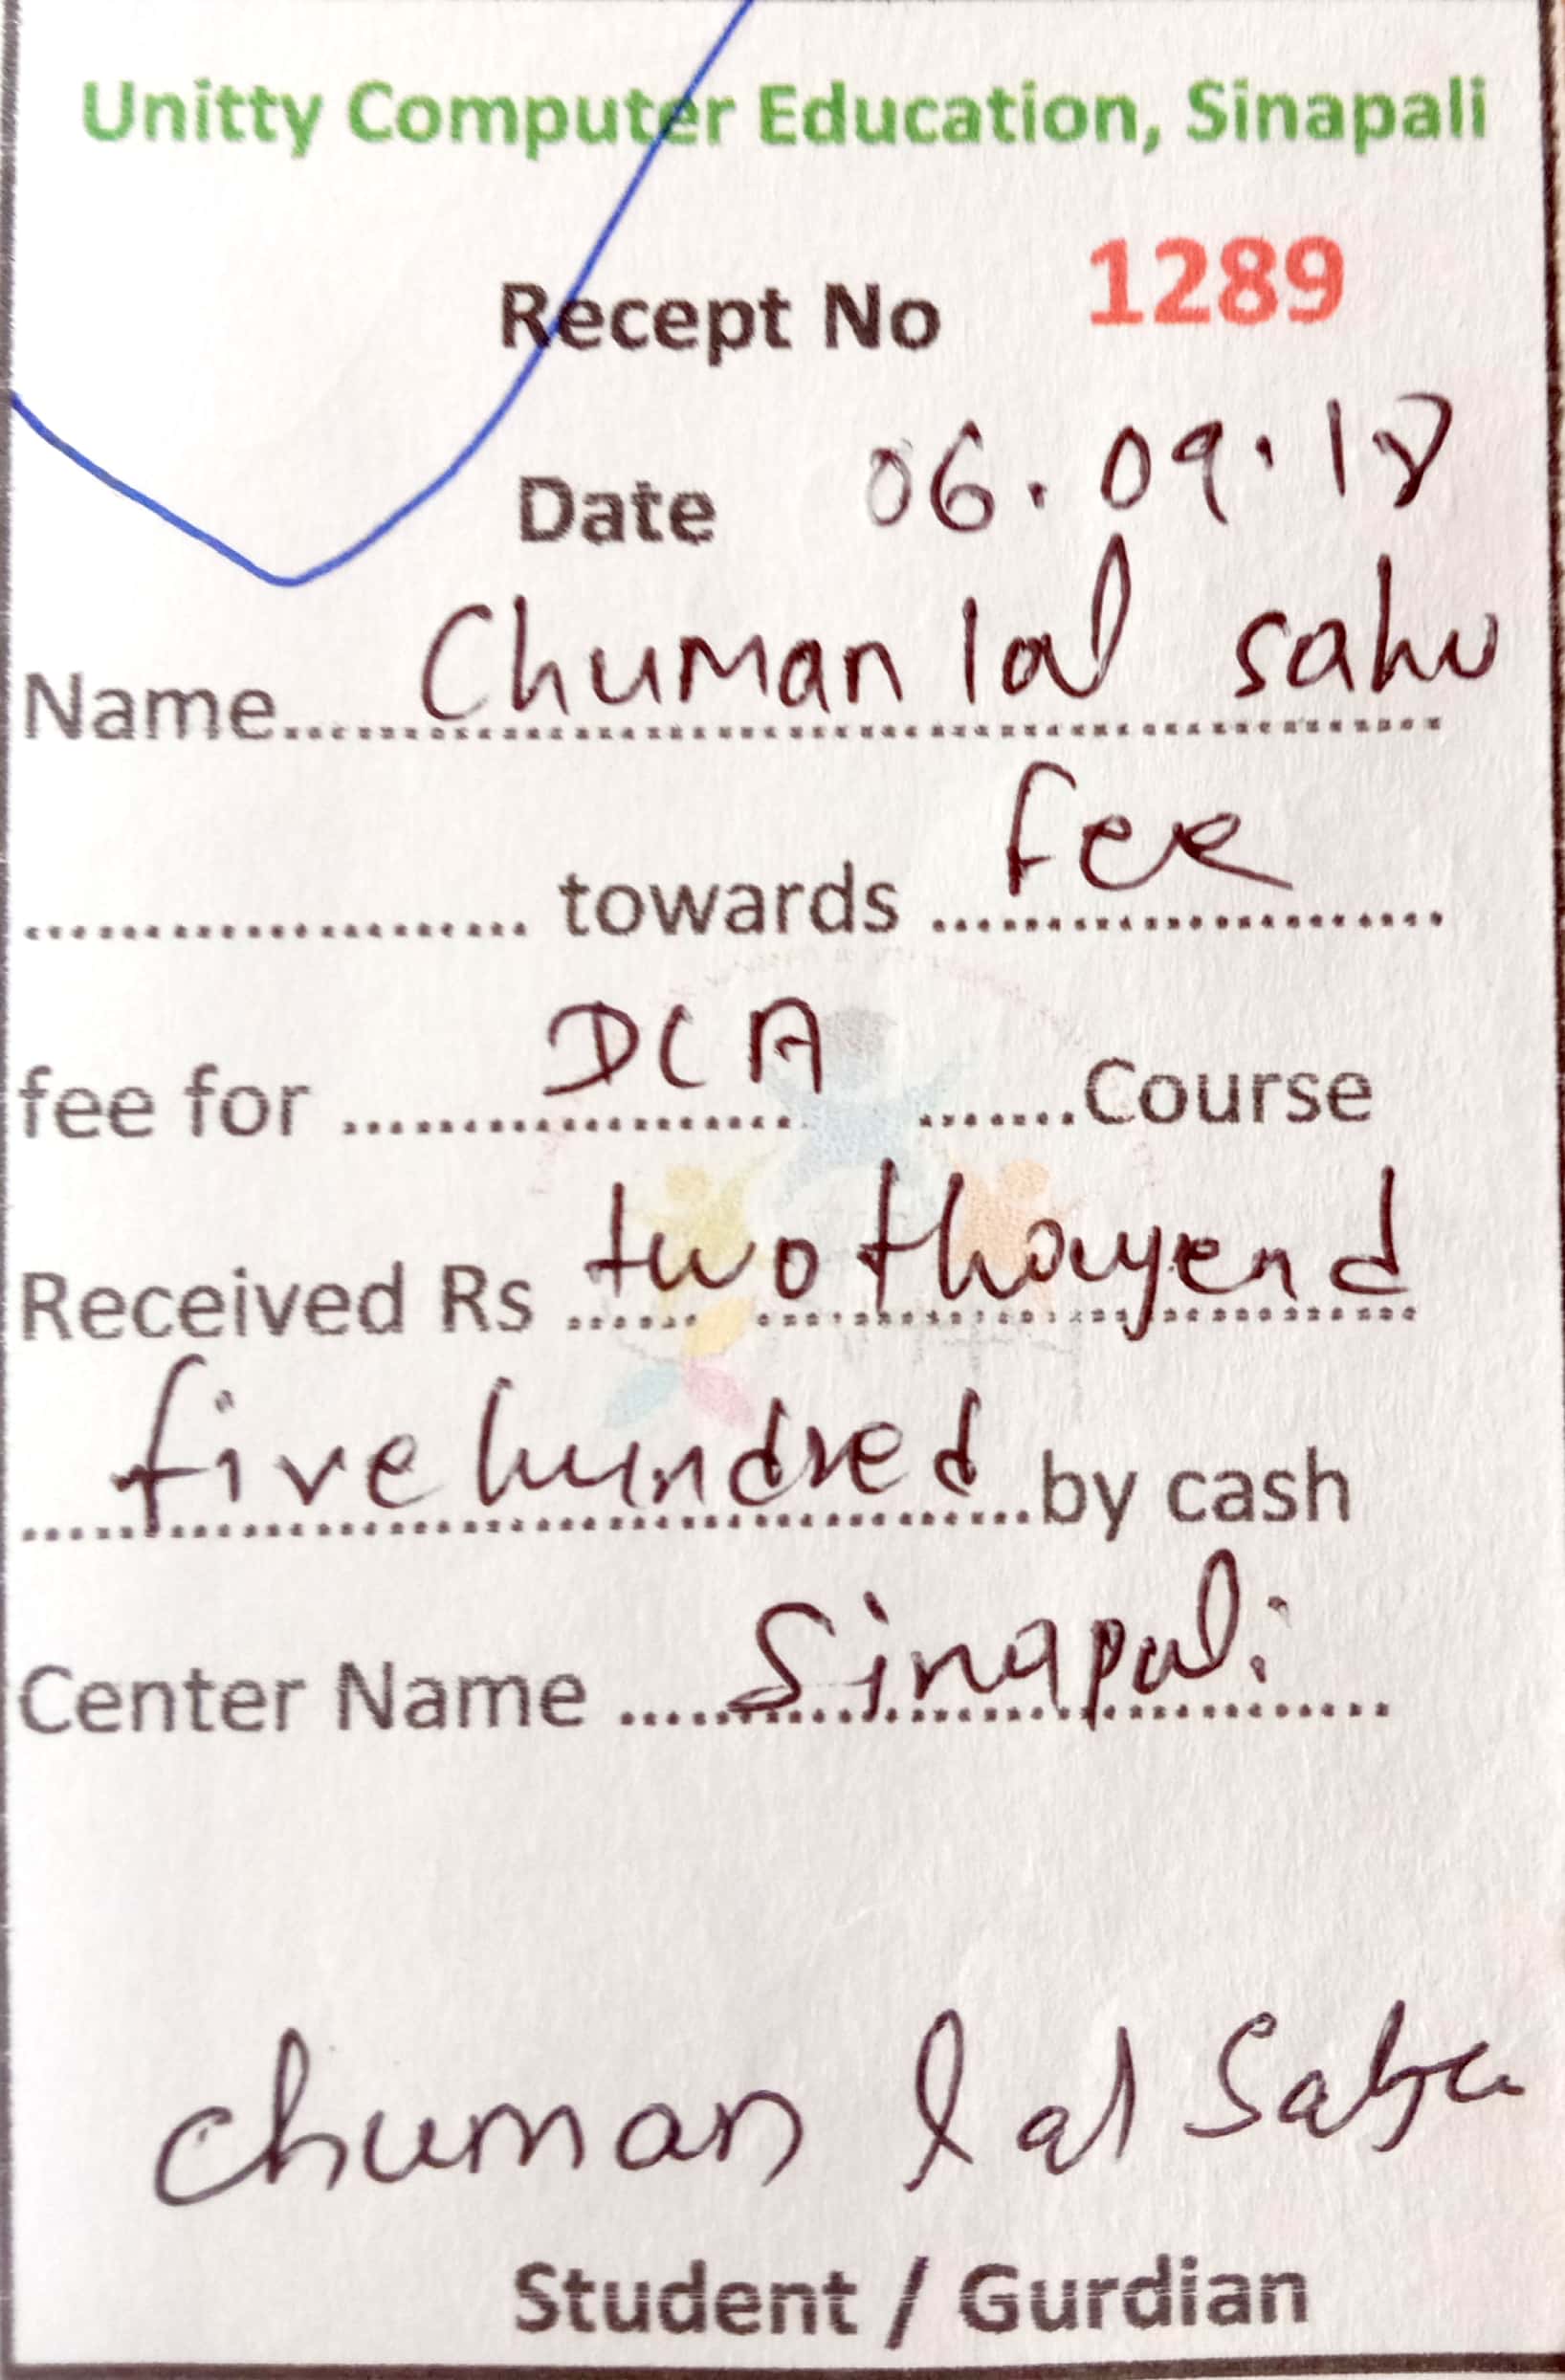 Unitty Computer Education, Sinapali
Recept No 1289
Date 06.09.18
Name........Chuman lal sahu
........ towards ........fee
fee for ........DCA........Course
Received Rs ........two thouyend
........five hundred........by cash
Center Name ........Sinapali
chuman lal Sahu
Student / Gurdian